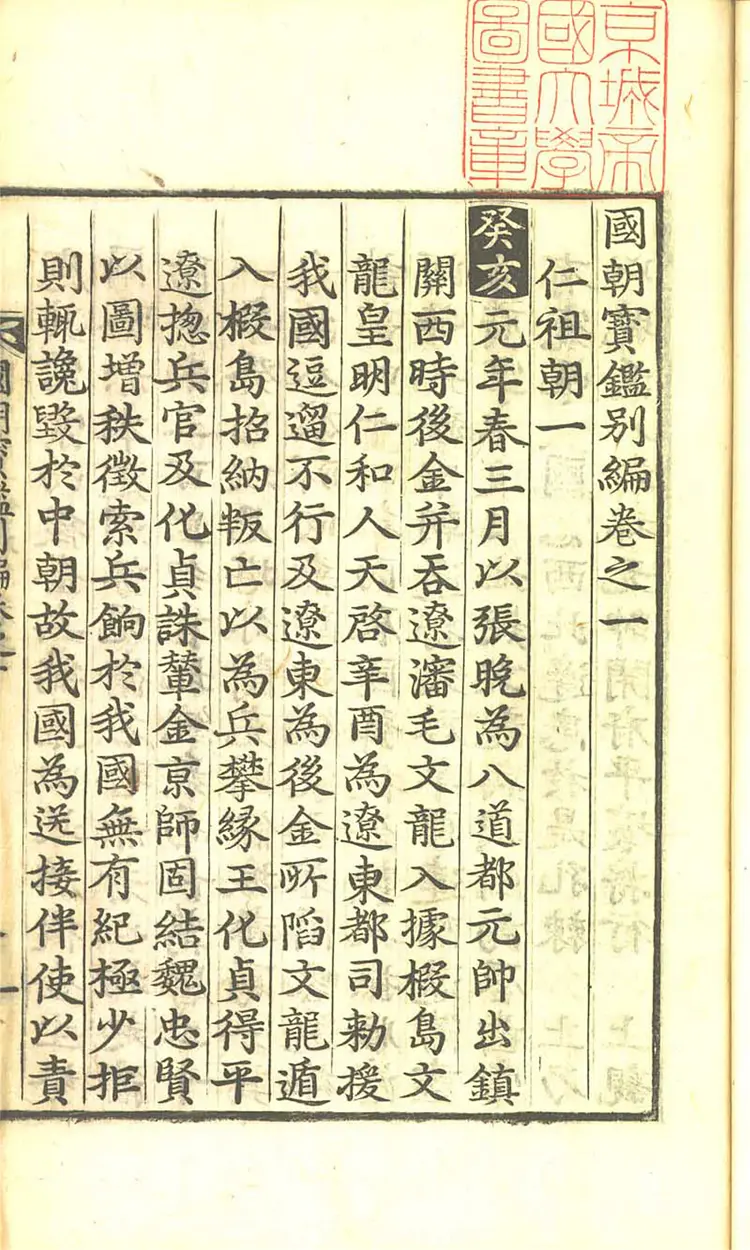 京城帝
國大學
圖書章
國朝寶鑑別編卷之一
仁祖朝一
癸亥元年春三月以張晚為八道都元帥出鎮
關西時後金并吞遼瀋毛文龍入據椵島文
龍皇明仁和人天啓辛酉為遼東都司勑援
我國逗遛不行及遼東為後金所陷文龍遁
入椵島招納叛亡以為兵攀緣王化貞得平
遼摠兵官及化貞誅輦金京師固結魏忠賢
以圖增秩徵索兵餉於我國無有紀極少拒
則輒讒毀於中朝故我國為送接伴使以責